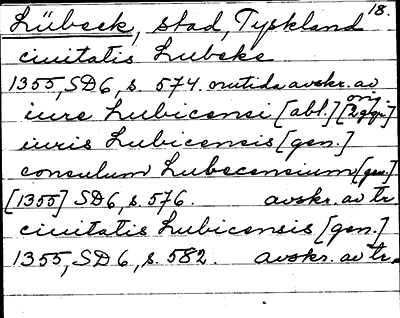 18.
Lübeck, stad, Tyskland
ciuitatis Lubeke
1355, SD6, s. 574. avskr. av
iure Lubicensi [abl.] [2 ggr.]
iuris Lubicensis [gen.]
consulum Lubecensium [gen.]
[1355] SD6, s. 576. avskr. av tr.
ciuitatis Lubicensis [gen.]
1355, SD6, s. 582. avskr. av tr.